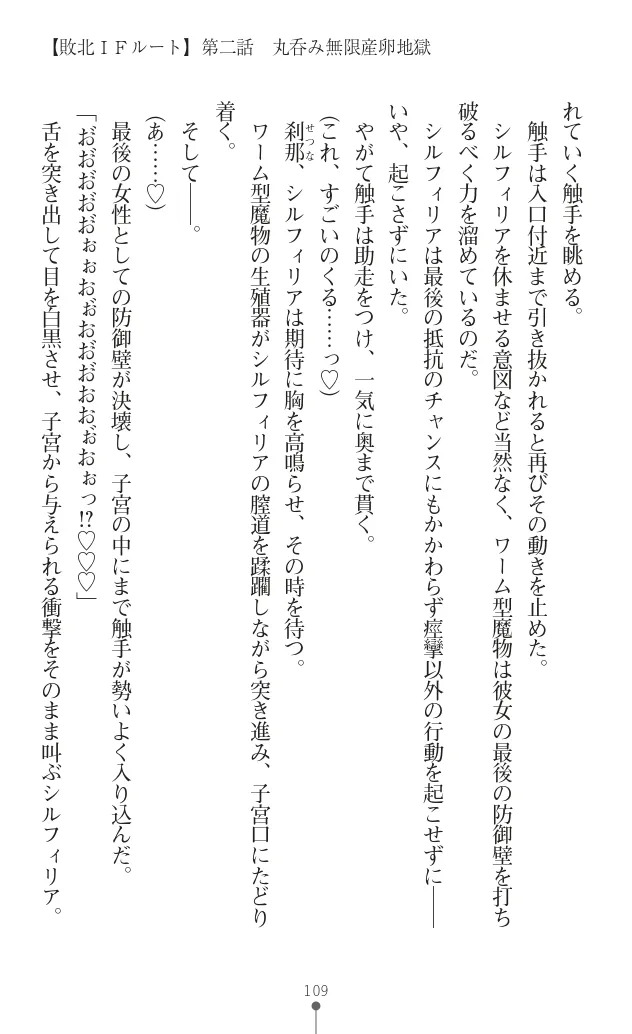 【敗北ＩＦルート】第二話　丸呑み無限産卵地獄
れていく触手を眺める。
触手は入口付近まで引き抜かれると再びその動きを止めた。
シルフィリアを休ませる意図など当然なく、ワーム型魔物は彼女の最後の防御壁を打ち
破るべく力を溜めているのだ。
シルフィリアは最後の抵抗のチャンスにもかかわらず痙攣以外の行動を起こせずに――
いや、起こさずにいた。
やがて触手は助走をつけ、一気に奥まで貫く。
(これ、すごいのくる……っ♡)
刹那、シルフィリアは期待に胸を高鳴らせ、その時を待つ。
せつな
ワーム型魔物の生殖器がシルフィリアの膣道を蹂躙しながら突き進み、子宮口にたどり
着く。
そして――。
(あ……♡)
最後の女性としての防御壁が決壊し、子宮の中にまで触手が勢いよく入り込んだ。
「お゙お゙お゙お゙お゙ぉぉお゙ぉお゙お゙お゙おおぉおぉっ!?♡♡♡」
舌を突き出して目を白黒させ、子宮から与えられる衝撃をそのまま叫ぶシルフィリア。
109